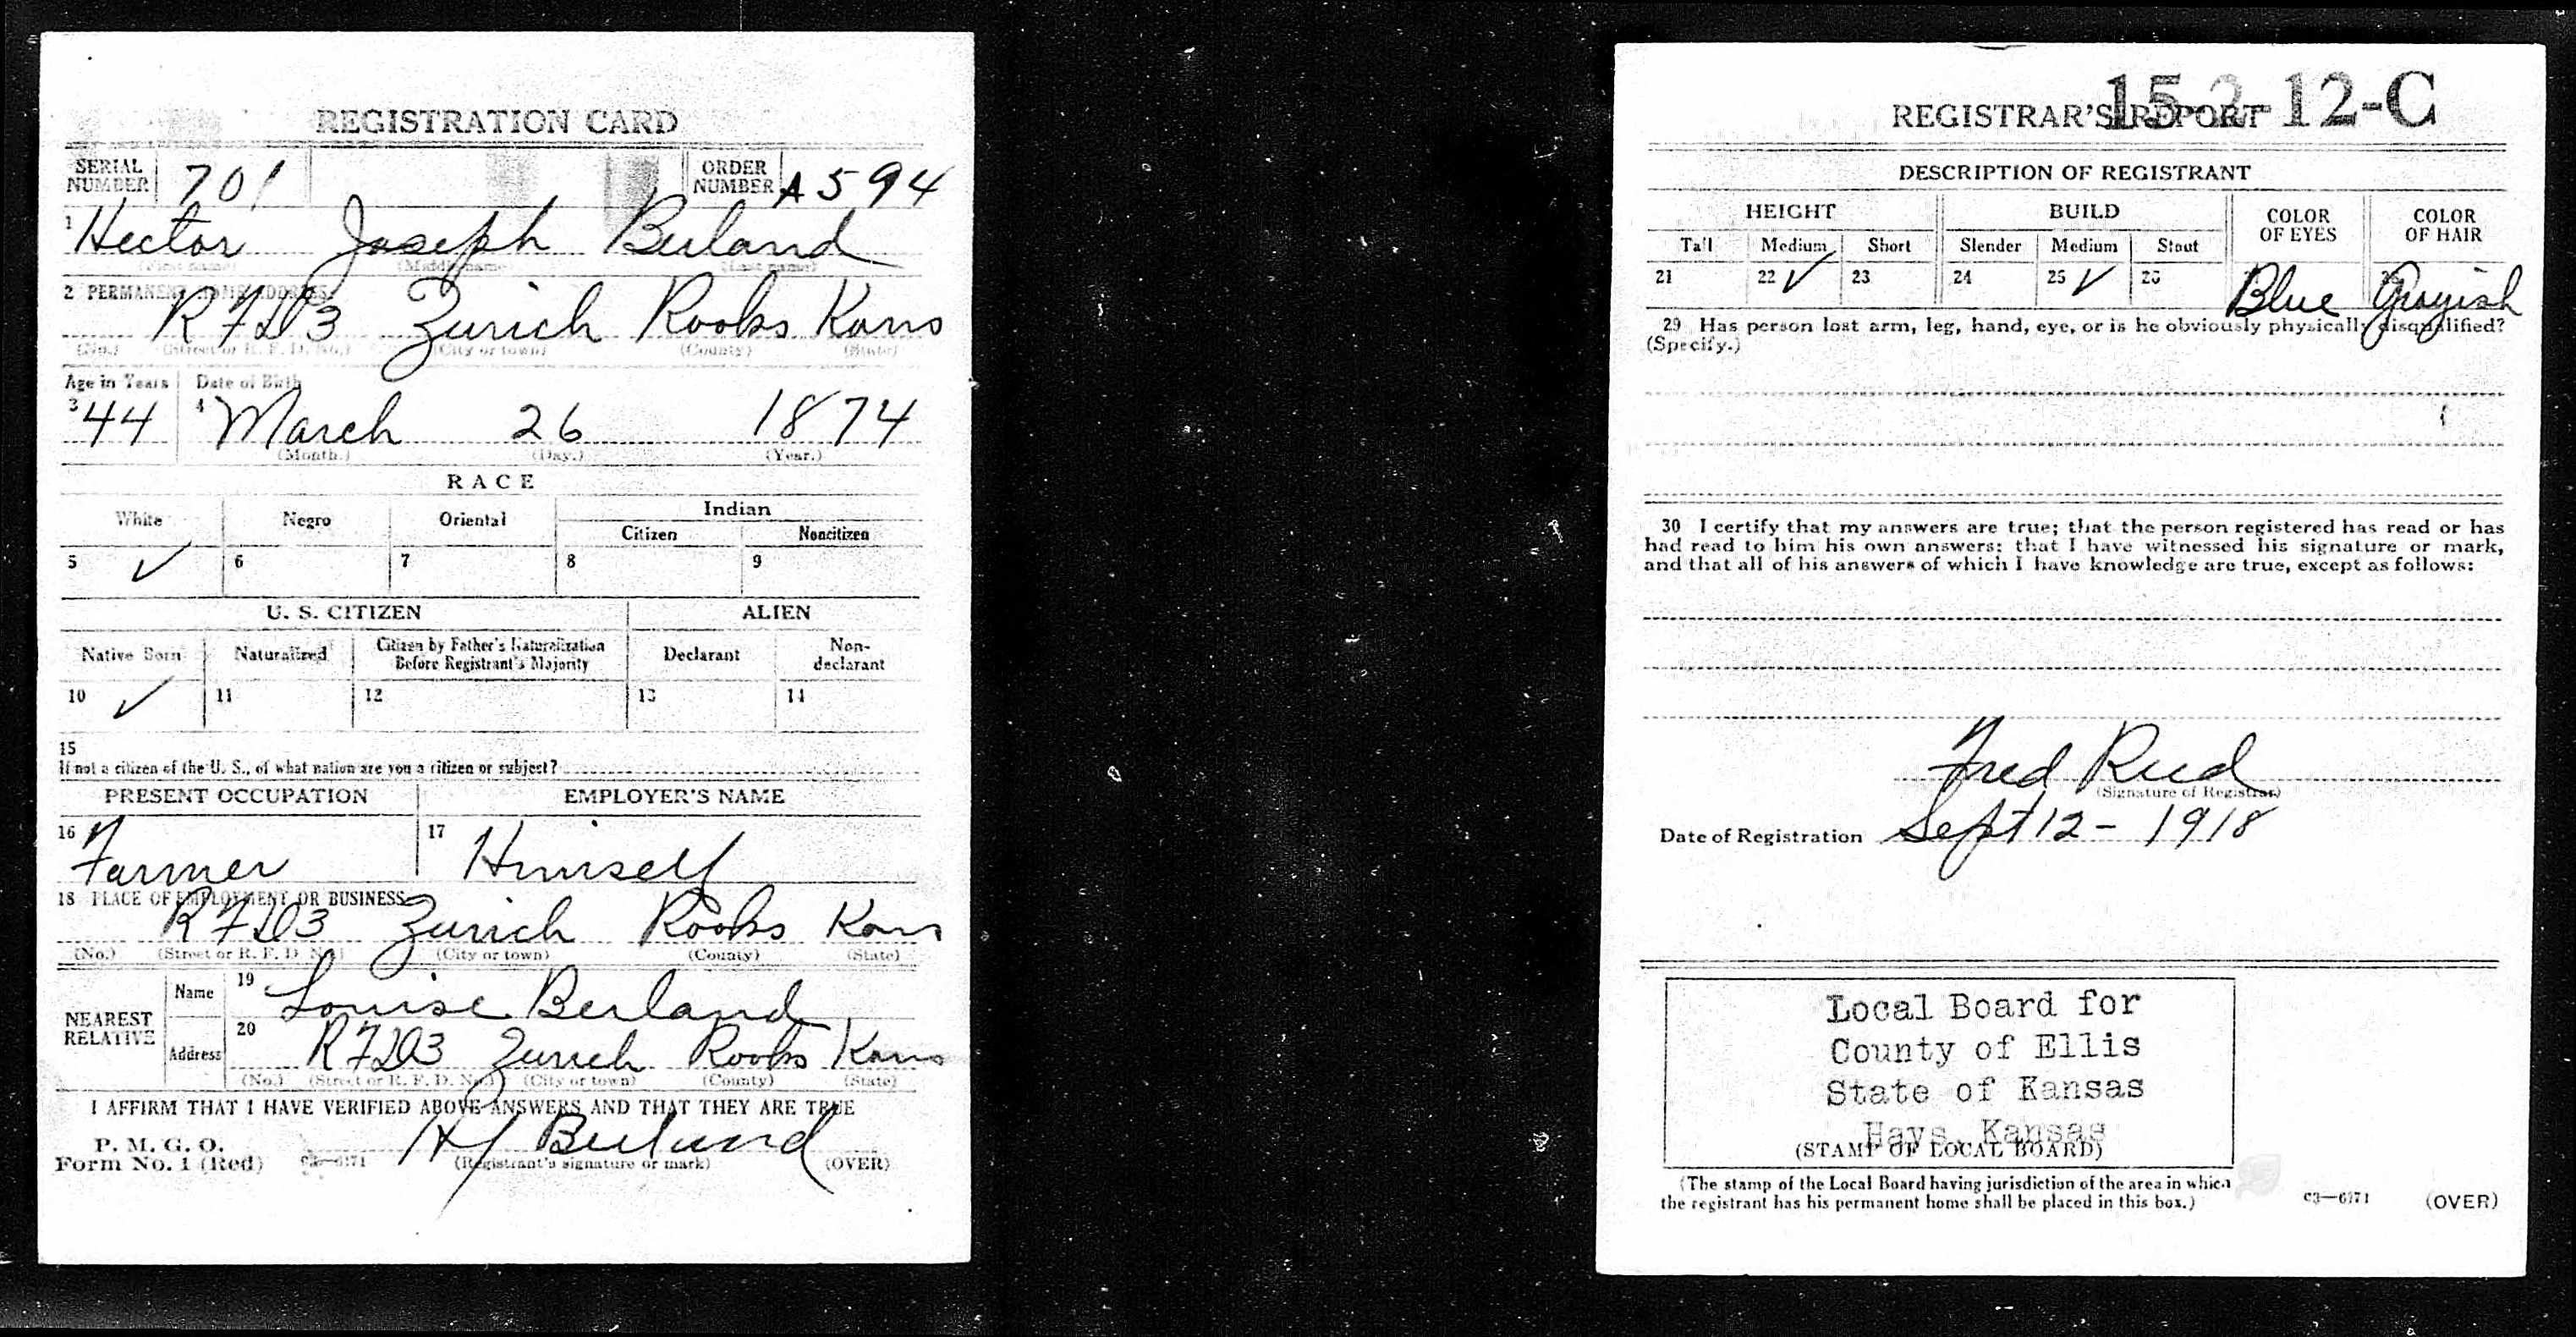 REGISTRATION CARD
SERIAL NUMBER 701 ORDER NUMBER A 594
1 Hector Joseph Berland
(First name) (Middle name) (Last name)
2 PERMANENT HOME ADDRESS
R F D 3 Zurich Rooks Kans
(No.) (Street or R. F. D. No.) (City or town) (County) (State)
Age in Years Date of Birth
3 44 4 March 26 1874
(Month.) (Day.) (Year.)
RACE
White Negro Oriental Indian
Citizen Noncitizen
5 ✓ 6 7 8 9
U. S. CITIZEN ALIEN
Native Born Naturalized Citizen by Father's Naturalization Before Registrant's Majority Declarant Non-declarant
10 ✓ 11 12 13 14
15
If not a citizen of the U. S., of what nation are you a citizen or subject?
PRESENT OCCUPATION EMPLOYER'S NAME
16 Farmer 17 Himself
18 PLACE OF EMPLOYMENT OR BUSINESS
R F D 3 Zurich Rooks Kans
(No.) (Street or R. F. D. No.) (City or town) (County) (State)
NEAREST RELATIVE Name 19 Louise Berland
Address 20 R F D 3 Zurich Rooks Kans
(No.) (Street or R. F. D. No.) (City or town) (County) (State)
I AFFIRM THAT I HAVE VERIFIED ABOVE ANSWERS AND THAT THEY ARE TRUE
P. M. G. O.
Form No. 1 (Red) C3—6171 H J Berland
(Registrant's signature or mark) (OVER)
15-2-12-C
REGISTRAR'S REPORT
DESCRIPTION OF REGISTRANT
HEIGHT BUILD COLOR OF EYES COLOR OF HAIR
Tall Medium Short Slender Medium Stout
21 22 ✓ 23 24 25 ✓ 26 Blue Grayish
29 Has person lost arm, leg, hand, eye, or is he obviously physically disqualified?
(Specify.)
30 I certify that my answers are true; that the person registered has read or has
had read to him his own answers; that I have witnessed his signature or mark,
and that all of his answers of which I have knowledge are true, except as follows:
Fred Reed
(Signature of Registrar)
Date of Registration Sept 12 - 1918
Local Board for
County of Ellis
State of Kansas
Hays, Kansas
(STAMP OF LOCAL BOARD)
(The stamp of the Local Board having jurisdiction of the area in which
the registrant has his permanent home shall be placed in this box.)
C3—6171 (OVER)